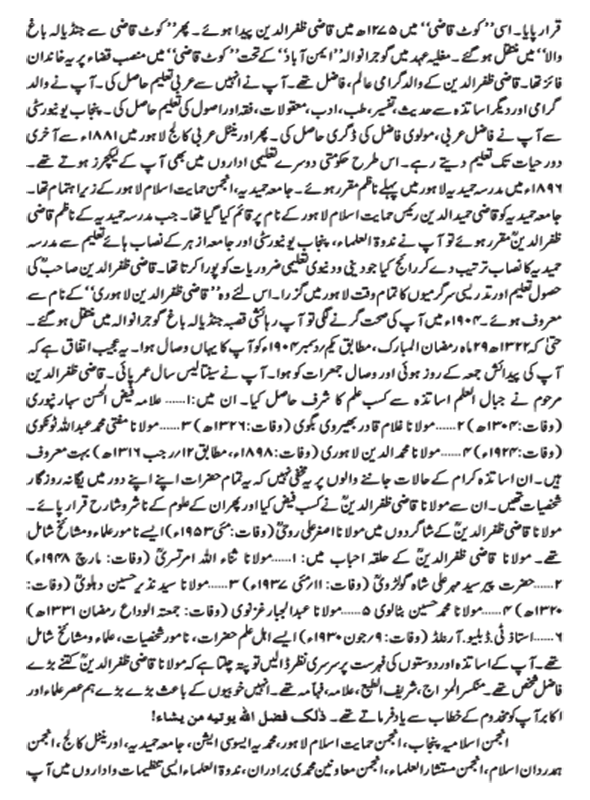 قرار پایا۔ اسی ”کوٹ قاضی“ میں ۱۲۷۵ھ میں قاضی ظفرالدین پیدا ہوئے۔ پھر ”کوٹ قاضی سے جنڈیالہ باغ
والا“ میں منتقل ہو گئے۔ مغلیہ عہد میں گوجرانوالہ ”ایمن آباد“ کے تحت ”کوٹ قاضی“ میں منصب قضاء پر یہ خاندان
فائز تھا۔ قاضی ظفرالدین کے والد گرامی عالم، فاضل تھے۔ آپ نے انہیں سے عربی تعلیم حاصل کی۔ آپ نے والد
گرامی اور دیگر اساتذہ سے حدیث، تفسیر، طب، ادب، معقولات، فقہ اور اصول کی تعلیم حاصل کی۔ پنجاب یونیورسٹی
سے آپ نے فاضل عربی، مولوی فاضل کی ڈگری حاصل کی۔ پھر اورینٹل عربی کالج لاہور میں ۱۸۸۱ء سے آخری
دور حیات تک تعلیم دیتے رہے۔ اس طرح حکومتی دوسرے تعلیمی اداروں میں بھی آپ کے لیکچرز ہوتے تھے۔
۱۸۹۶ء میں مدرسہ حمیدیہ لاہور میں پہلے ناظم مقرر ہوئے۔ جامعہ حمیدیہ، انجمن حمایت اسلام لاہور کے زیر اہتمام تھا۔
جامعہ حمیدیہ کو قاضی حمید الدین رئیس حمایت اسلام لاہور کے نام پر قائم کیا گیا تھا۔ جب مدرسہ حمیدیہ کے ناظم قاضی
ظفرالدینؒ مقرر ہوئے تو آپ نے ندوۃ العلماء، پنجاب یونیورسٹی اور جامعہ ازہر کے نصاب ہائے تعلیم سے مدرسہ
حمیدیہ کا نصاب ترتیب دے کر رائج کیا جو دینی و دنیوی تعلیمی ضروریات کو پورا کرتا تھا۔ قاضی ظفرالدین صاحبؒ کی
حصول تعلیم اور تدریسی سرگرمیوں کا تمام وقت لاہور میں گزرا۔ اس لئے وہ ”قاضی ظفرالدین لاہوری“ کے نام سے
معروف ہوئے۔ ۱۹۰۴ء میں آپ کی صحت گرنے لگی تو آپ رہائشی قصبہ جنڈیالہ باغ گوجرانوالہ میں منتقل ہو گئے۔
حتیٰ کہ ۱۳۲۲ھ ۲۹ ماہ رمضان المبارک، مطابق یکم دسمبر ۱۹۰۴ء کو آپ کا یہاں وصال ہوا۔ یہ عجیب اتفاق ہے کہ
آپ کی پیدائش جمعہ کے روز ہوئی اور وصال جمعرات کو ہوا۔ آپ نے سینتالیس سال عمر پائی۔ قاضی ظفرالدین
مرحوم نے جبال العلم اساتذہ سے کسب علم کا شرف حاصل کیا۔ ان میں: ۱...... علامہ فیض الحسن سہارنپوری
(وفات: ۱۳۰۴ھ) ۲...... مولانا غلام قادر بھیروی بگوی (وفات: ۱۳۲۶ھ) ۳...... مولانا مفتی محمد عبداللہ ٹونکوی
(وفات: ۱۹۲۴ء) ۴...... مولانا محمد الدین لاہوری (وفات: ۱۸۹۸ء، مطابق ۱۲؍رجب ۱۳۱۶ھ) بہت معروف
ہیں۔ ان اساتذہ کرام کے حالات جاننے والوں پر یہ مخفی نہیں کہ یہ تمام حضرات اپنے اپنے دور میں یگانہ روزگار
شخصیات تھیں۔ ان سے مولانا قاضی ظفرالدینؒ نے کسب فیض کیا اور پھر ان کے علوم کے ناشر و شارح قرار پائے۔
مولانا قاضی ظفرالدینؒ کے شاگردوں میں مولانا اصغر علی روحیؒ (وفات: مئی ۱۹۵۳ء) ایسے نامور علماء و مشائخ شامل
تھے۔ مولانا قاضی ظفرالدینؒ کے حلقہ احباب میں: ۱...... مولانا ثناء اللہ امرتسریؒ (وفات: مارچ ۱۹۴۸ء)
۲...... حضرت پیر سید مہر علی شاہ گولڑویؒ (وفات: ۱۱؍مئی ۱۹۳۷ء) ۳...... مولانا سید نذیر حسین دہلویؒ (وفات:
۱۳۲۰ھ) ۴...... مولانا محمد حسین بٹالوی ۵...... مولانا عبدالجبار غزنوی (وفات: جمعتہ الوداع رمضان ۱۳۳۱ھ)
۶...... استاذ ٹی. ڈبلیو. آرنلڈ (وفات: ۹؍جون ۱۹۳۰ء) ایسے اہل علم حضرات، نامور شخصیات، علماء و مشائخ شامل
تھے۔ آپ کے اساتذہ اور دوستوں کی فہرست پر سرسری نظر ڈالیں تو پتہ چلتا ہے کہ مولانا قاضی ظفرالدینؒ کتنے بڑے
فاضل شخص تھے۔ منکسر المزاج، شریف الطبع، علامہ، فہامہ تھے۔ انہیں خوبیوں کے باعث بڑے بڑے ہم عصر علماء اور
اکابر آپ کو مخدوم کے خطاب سے یاد فرماتے تھے۔ ذٰلک فضل اللہ یوتیہ من یشاء!
انجمن اسلامیہ پنجاب، انجمن حمایت اسلام لاہور، محمدیہ ایسوسی ایشن، جامعہ حمیدیہ، اورینٹل کالج، انجمن
ہمدردان اسلام، انجمن مستشار العلماء، انجمن معاونین محمدی برادران، ندوۃ العلماء ایسی تنظیمات و اداروں میں آپ